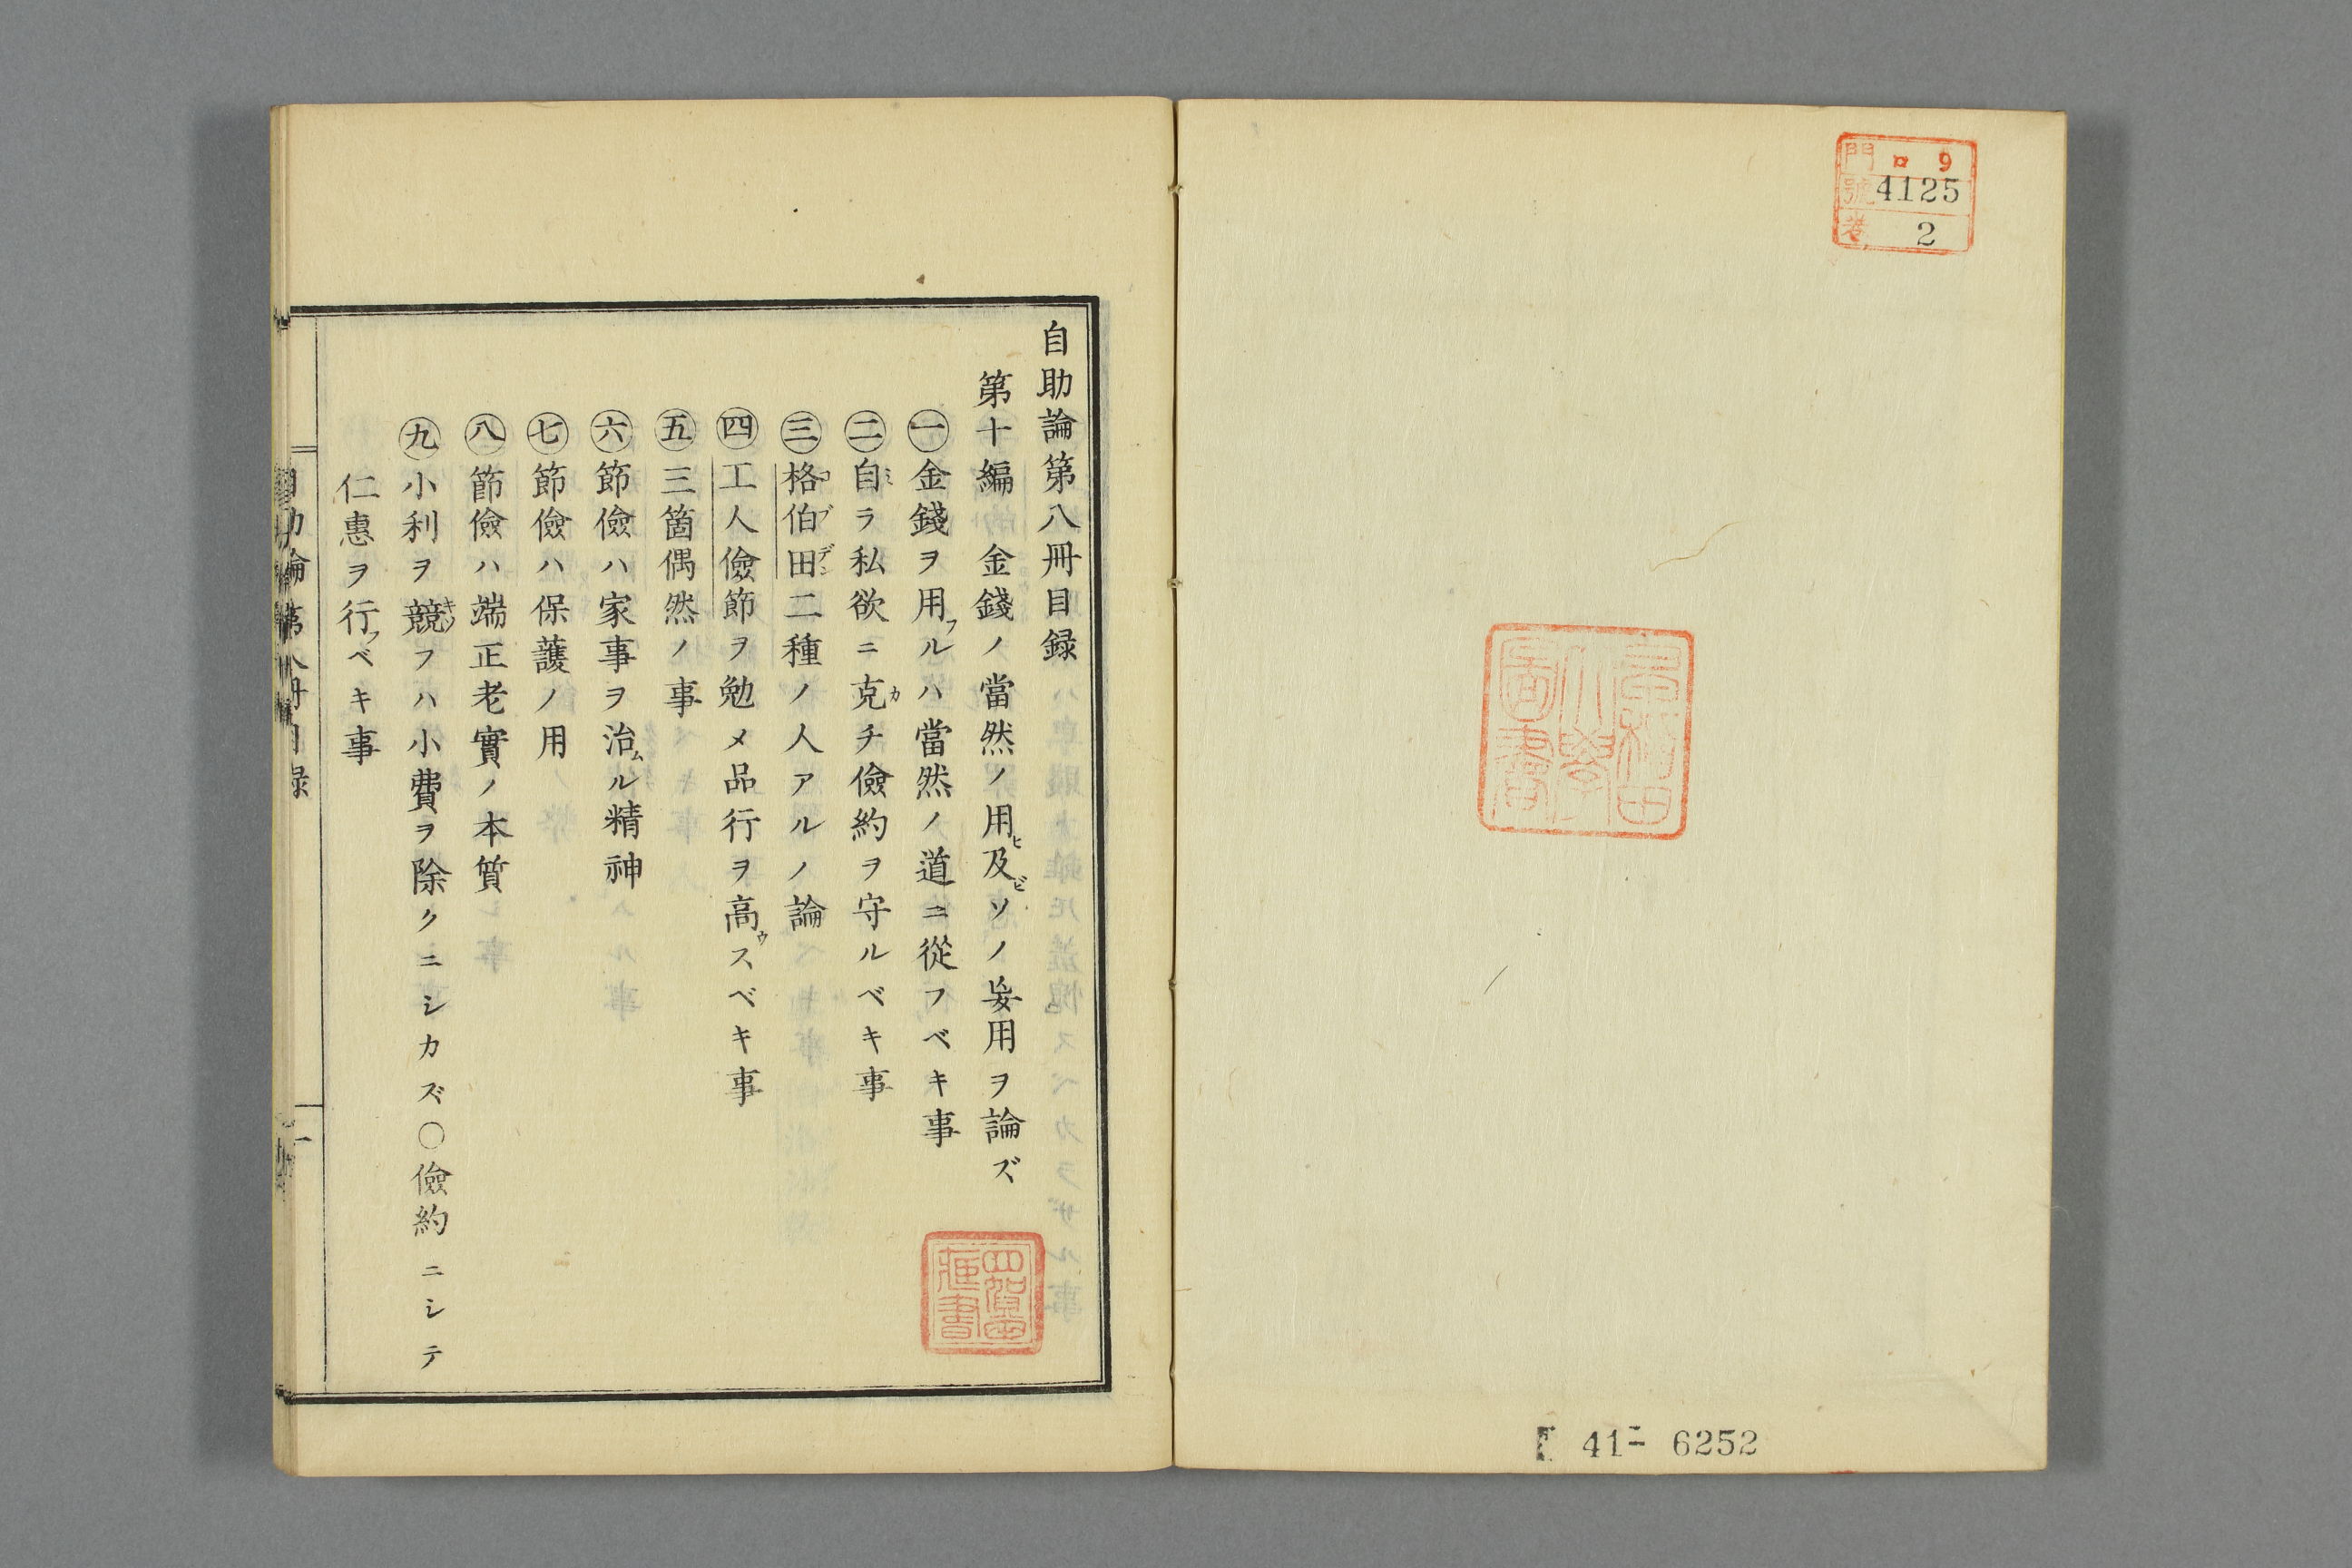 門 ロ 9
號 4125
巻 2
早稲田
大學
圖書
41- 6252
自助論第八冊目録
第十編 金錢ノ當然ノ用ヒ及ビソノ妄用ヲ論ズ
㊀金錢ヲ用フルハ當然ノ道ニ從フベキ事
㊁自ラ私欲ニ克チ儉約ヲ守ルベキ事
㊂格伯田二種ノ人アルノ論
㊃工人儉節ヲ勉メ品行ヲ高ウスベキ事
㊄三箇偶然ノ事
㊅節儉ハ家事ヲ治ムル精神
㊆節儉ハ保護ノ用
㊇節儉ハ端正老實ノ本質
㊈小利ヲ競フハ小費ヲ除クニシカズ○儉約ニシテ
仁惠ヲ行フベキ事
自助論第八冊目録 一